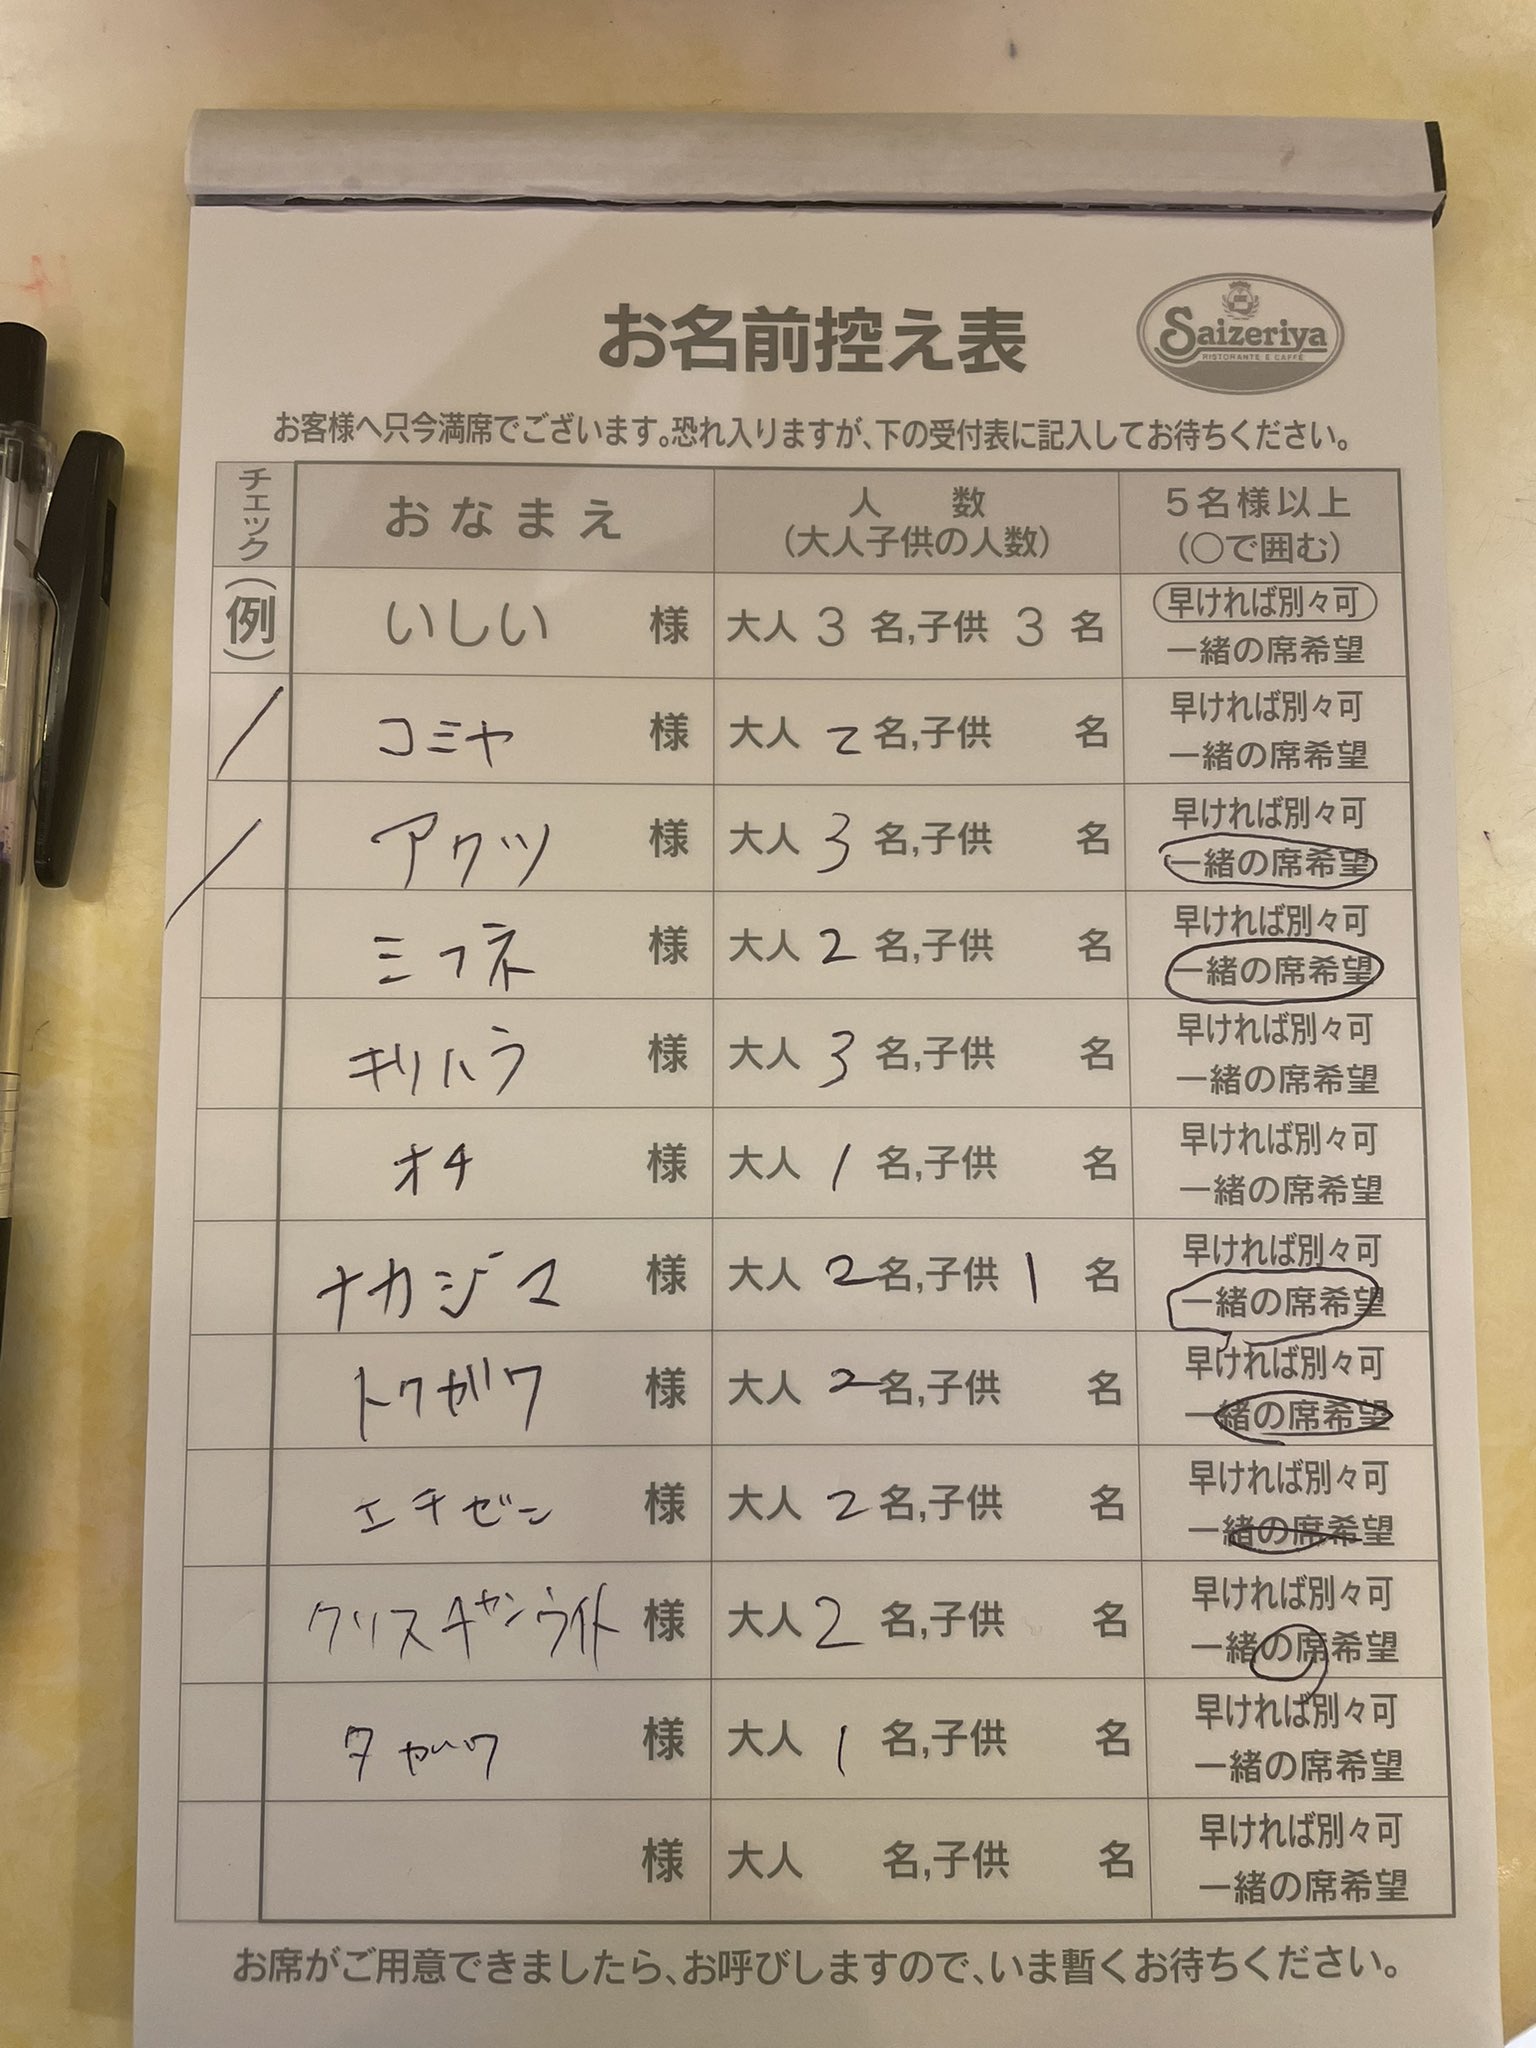 お名前控え表
Saizeriya
RISTORANTE E CAFFÈ
お客様へ只今満席でございます。恐れ入りますが、下の受付表に記入してお待ちください。
チェック おなまえ 人数 (大人子供の人数) 5名様以上 (○で囲む)
(例) いしい 様 大人 3 名,子供 3 名 早ければ別々可
一緒の席希望
コミヤ 様 大人 2 名,子供 名 早ければ別々可
一緒の席希望
アクツ 様 大人 3 名,子供 名 早ければ別々可
一緒の席希望
ミフネ 様 大人 2 名,子供 名 早ければ別々可
一緒の席希望
キリハラ 様 大人 3 名,子供 名 早ければ別々可
一緒の席希望
オチ 様 大人 1 名,子供 名 早ければ別々可
一緒の席希望
ナカジマ 様 大人 2 名,子供 1 名 早ければ別々可
一緒の席希望
トクガワ 様 大人 2 名,子供 名 早ければ別々可
一緒の席希望
エチゼン 様 大人 2 名,子供 名 早ければ別々可
一緒の席希望
クリスチャンライト 様 大人 2 名,子供 名 早ければ別々可
一緒の席希望
タガワ 様 大人 1 名,子供 名 早ければ別々可
一緒の席希望
様 大人 名,子供 名 早ければ別々可
一緒の席希望
お席がご用意できましたら、お呼びしますので、いま暫くお待ちください。